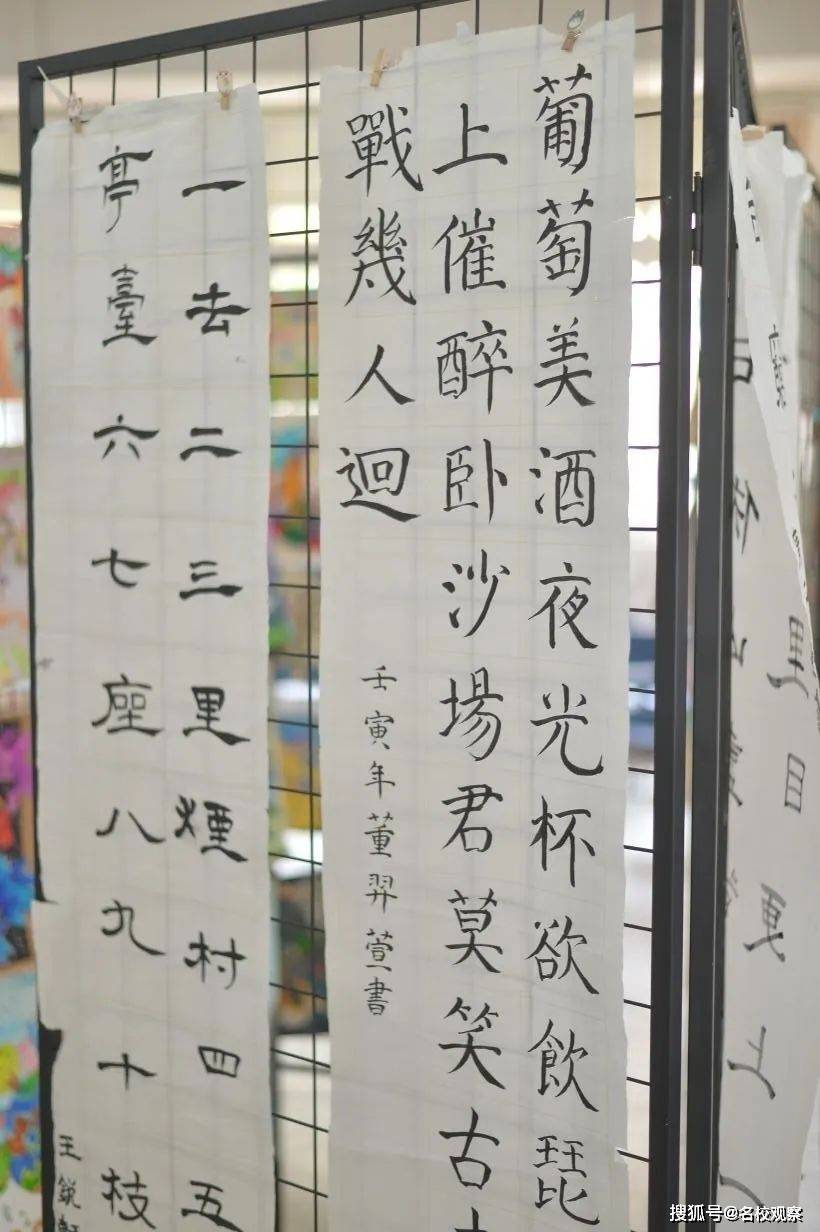 里目
更上
葡萄美酒夜光杯欲飲琵
上催醉卧沙場君莫笑古
戰幾人迴
壬寅年董羿萱書
一去二三里煙村四五
亭臺六七座八九十枝
王銳
搜狐号@名校观察